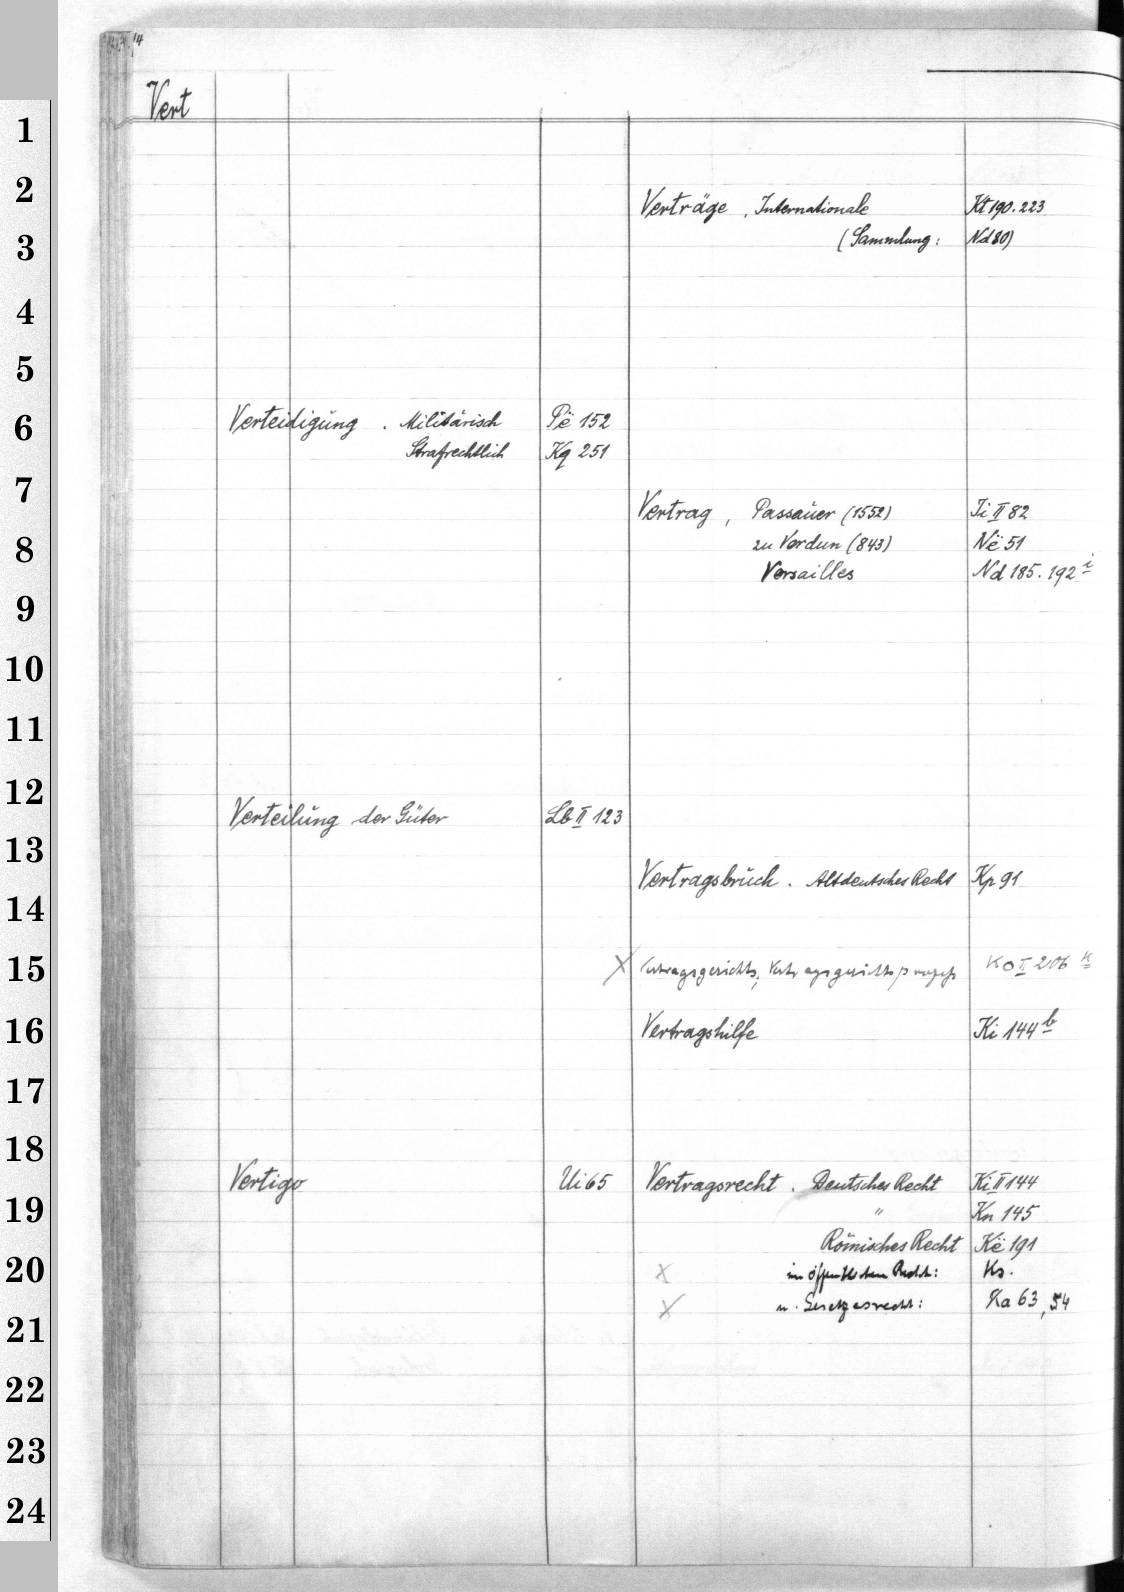 Vert
1
2
3
4
5
6
7
8
9
10
11
12
13
14
15
16
17
18
19
20
21
22
23
24
Verteidigung . Militärisch Pë 152
Strafrechtlich Kq 251
Verteilung der Güter Lb II 123
Vertigo Ui 65
Verträge , Internationale Kt 190. 223
(Sammlung: Nd 80)
Vertrag , Passauer (1552) Ji II 82
zu Verdun (843) Në 51
Versailles Nd 185. 192 i
Vertragsbruch . Altdeutsches Recht Kp 91
X Vertragsgerichts, Ko II 206 k
Vertragshilfe Ki 144 b
Vertragsrecht . Deutsches Recht Ki II 144
" Kn 145
Römisches Recht Kë 191
X im öffentlichen Recht: Ks.
X u. Gesetzesrecht: Ka 63, 54